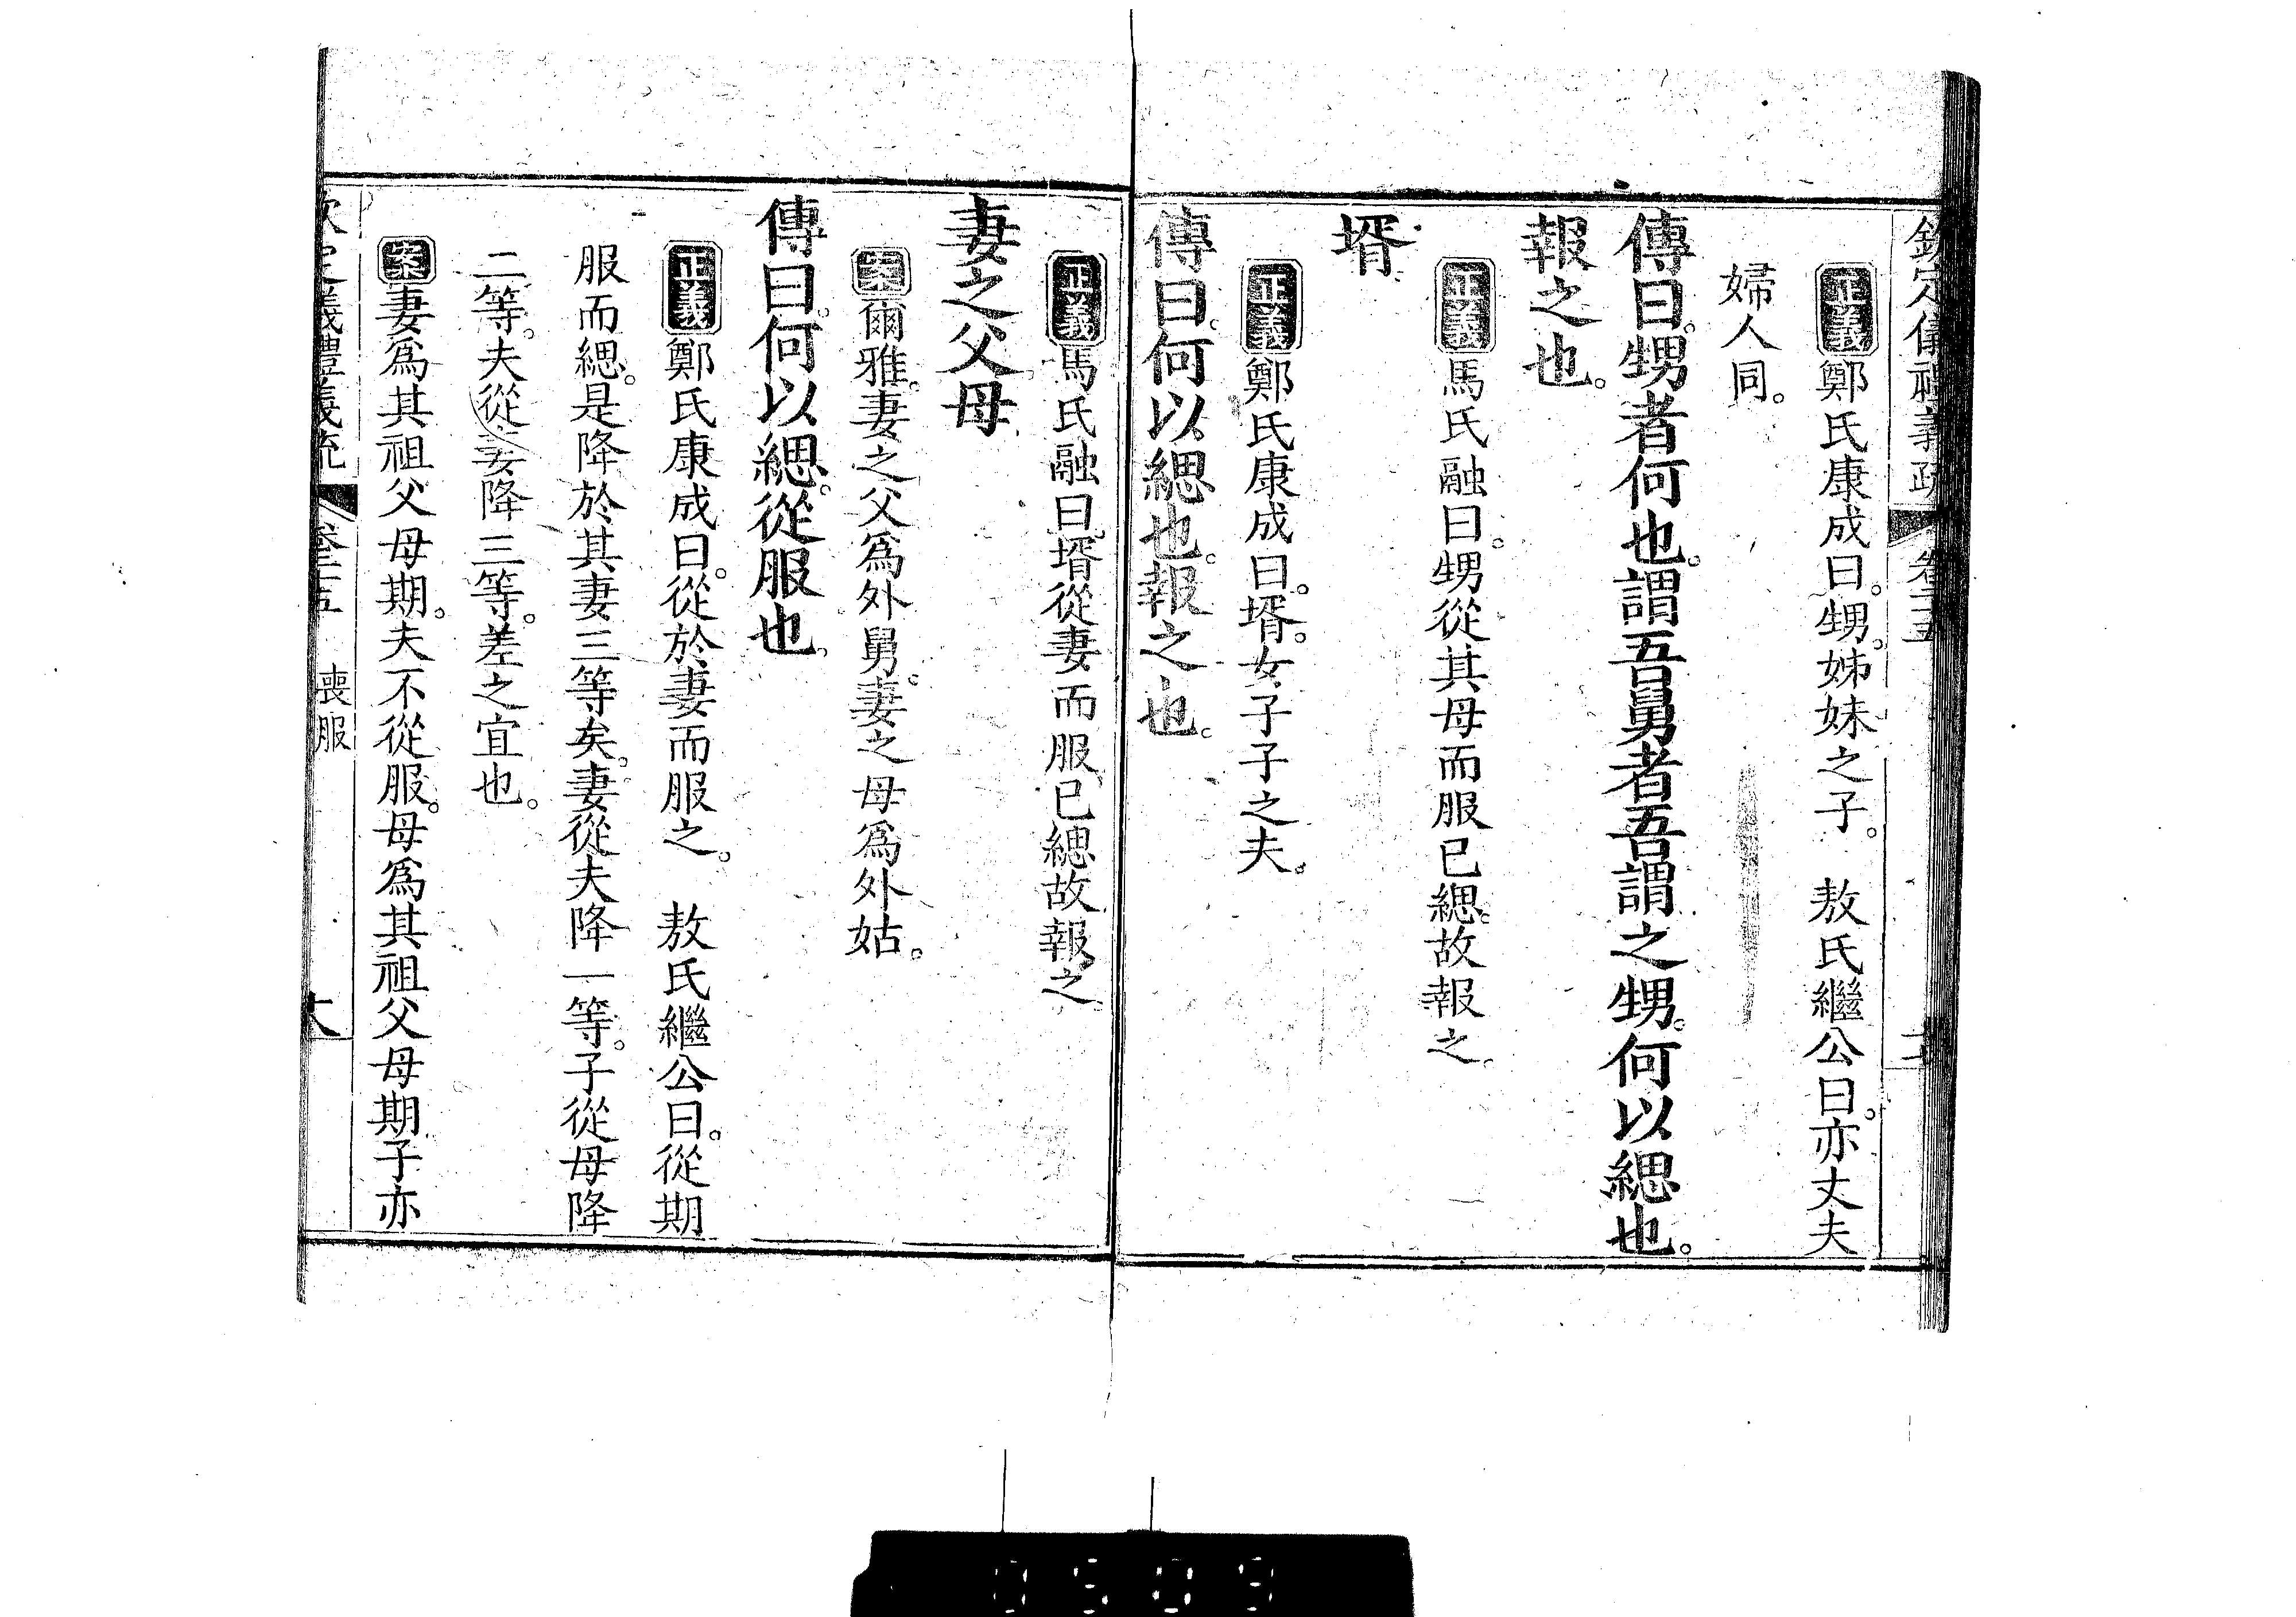 欽定儀禮義疏 卷二十五
正義鄭氏康成曰。甥。姊妹之子。 敖氏繼公曰。亦丈夫
婦人同。
傳曰。甥者何也。謂吾舅者吾謂之甥。何以緦也。
報之也。
正義馬氏融曰。甥從其母而服已緦。故報之。
壻
正義鄭氏康成曰。壻。女子子之夫。
傳曰。何以緦也。報之也。
正義馬氏融曰。壻從妻而服已緦故報之。
妻之父母
案爾雅。妻之父爲外舅。妻之母爲外姑。
傳曰。何以緦。從服也。
正義鄭氏康成曰。從於妻而服之。 敖氏繼公曰。從期
服而緦。是降於其妻三等矣。妻從夫降一等。子從母降
二等。夫從妻降三等。差之宜也。
案妻爲其祖父母期。夫不從服。母爲其祖父母期子亦
欽定儀禮義疏 卷二十五 喪服
0509